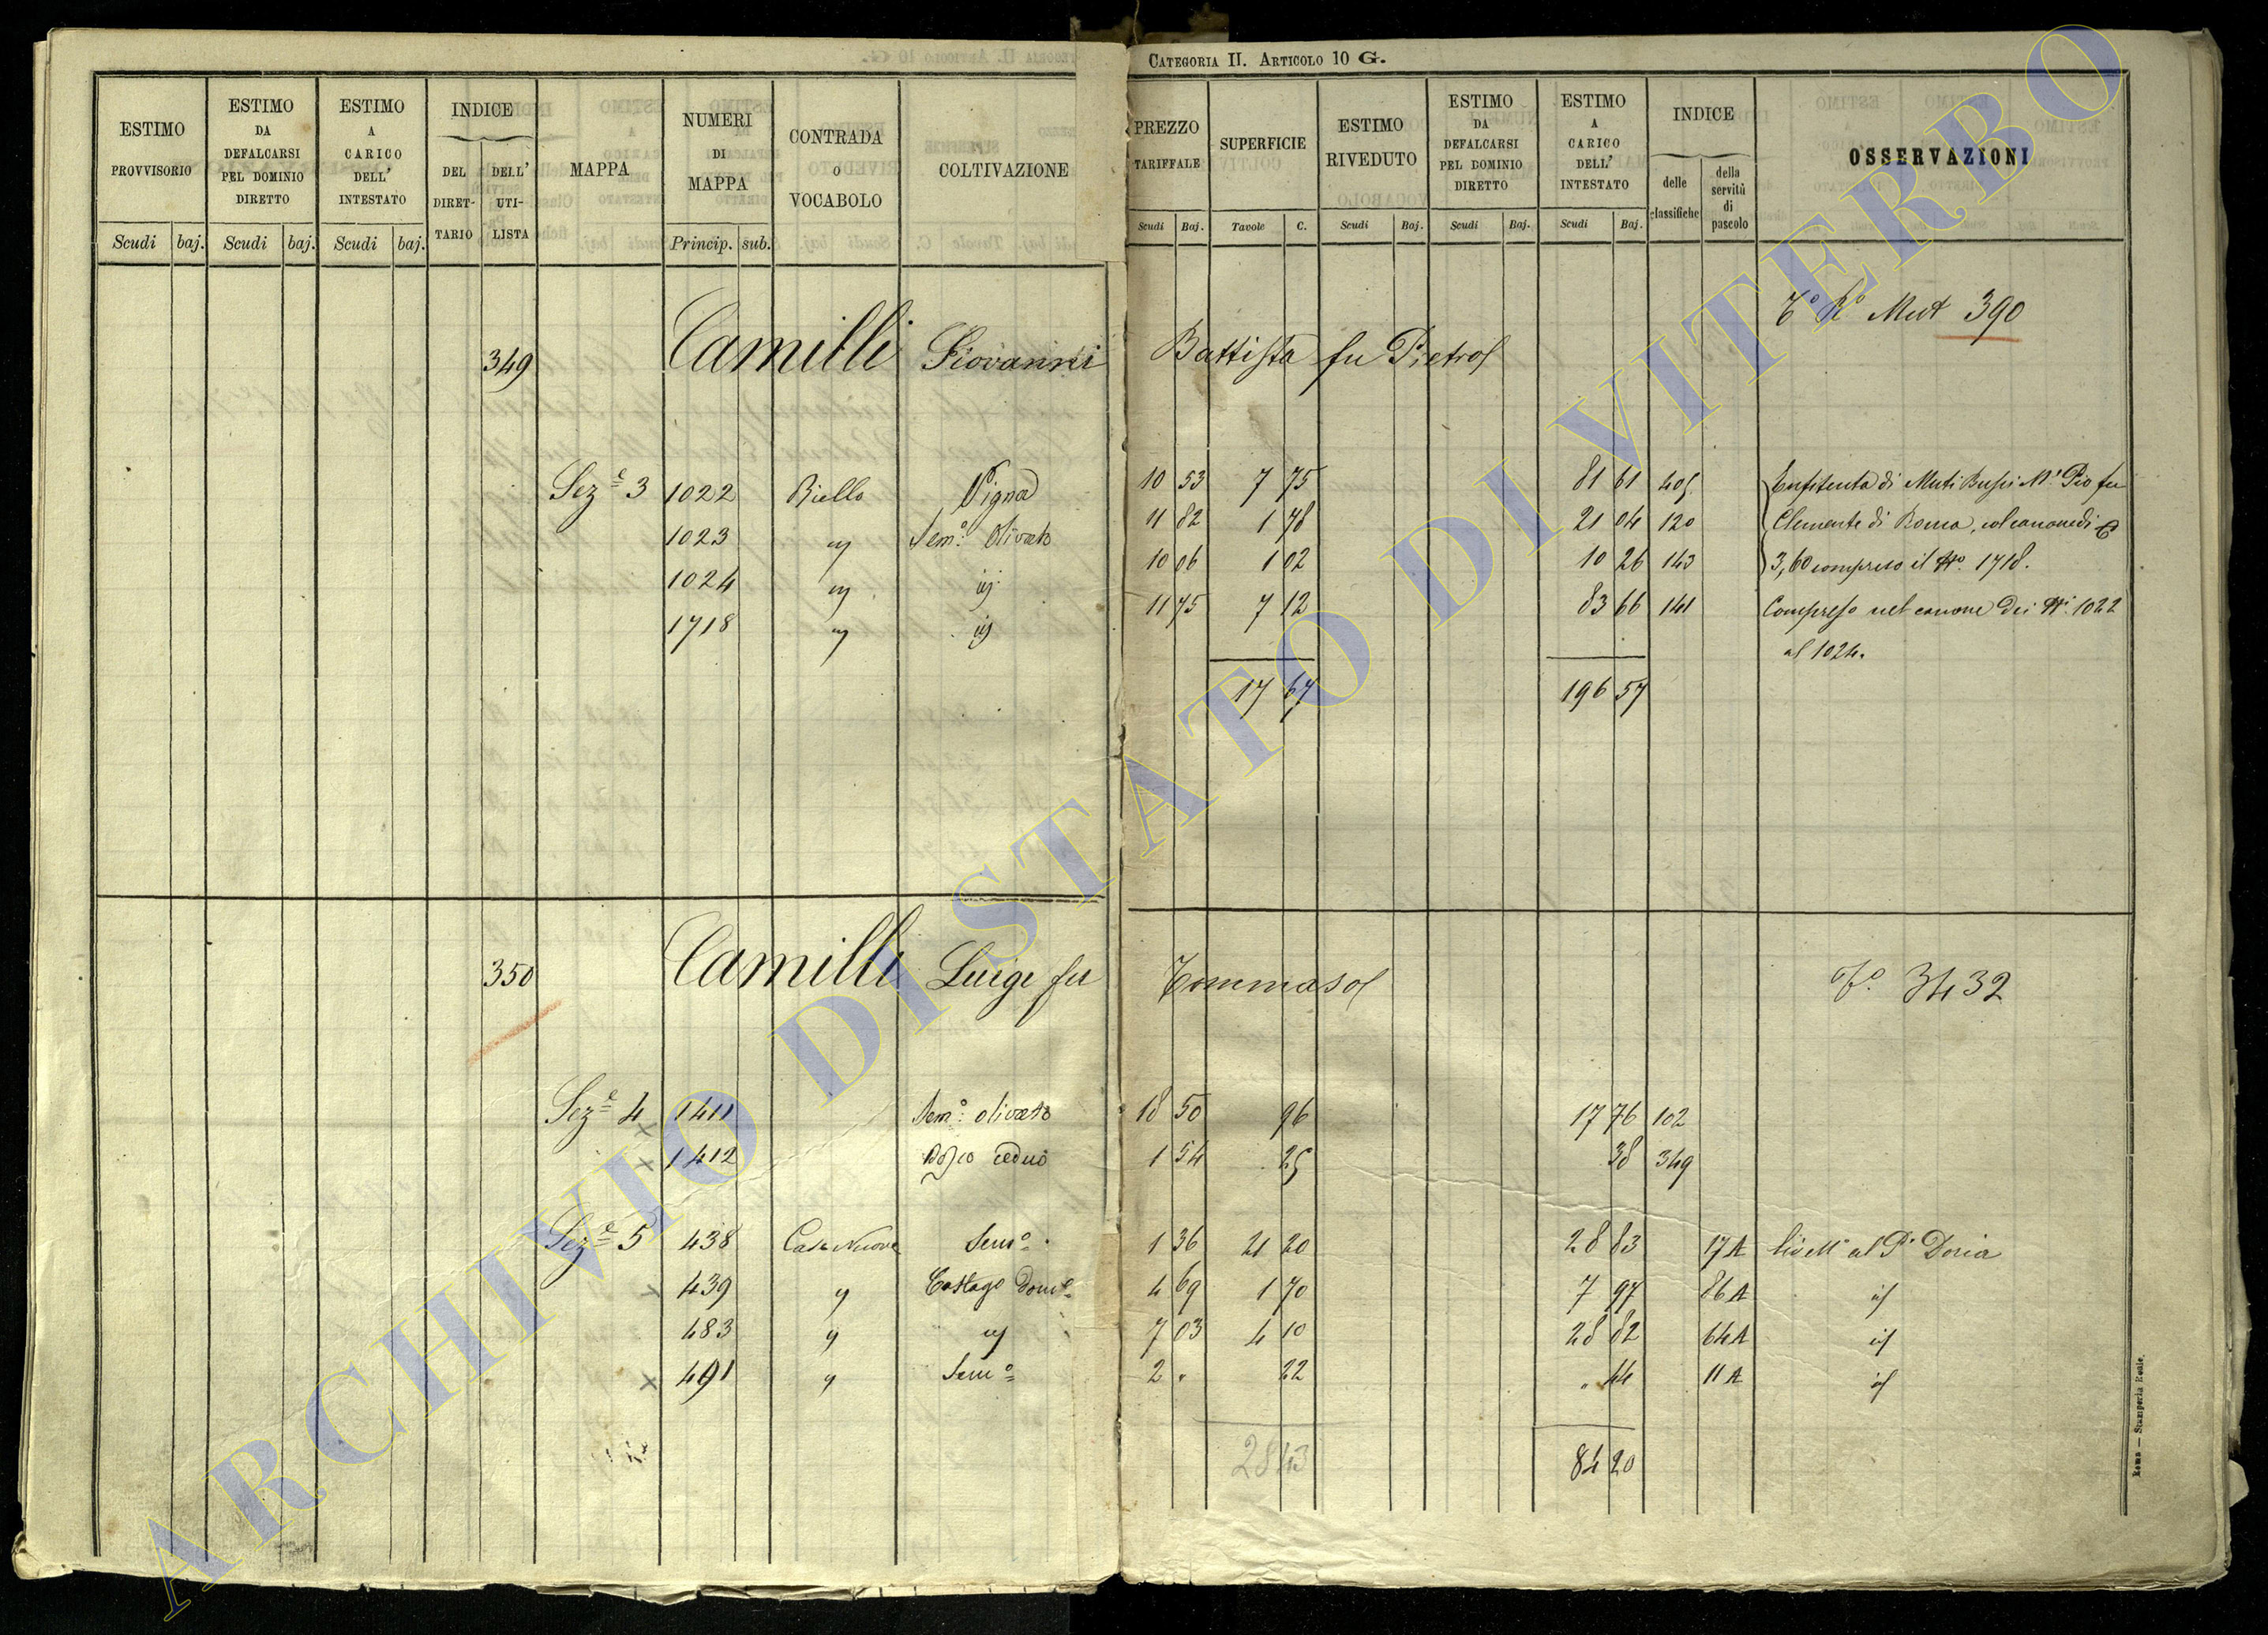 CATEGORIA II. ARTICOLO 10 G.
ESTIMO PROVVISORIO Scudi baj.
ESTIMO DA DEFALCARSI PEL DOMINIO DIRETTO Scudi baj.
ESTIMO A CARICO DELL' INTESTATO Scudi baj.
INDICE DEL DIRETTARIO DELL' UTILISTA
MAPPA
NUMERI DI MAPPA Princip. sub.
CONTRADA O VOCABOLO
COLTIVAZIONE
PREZZO TARIFFALE Scudi Baj.
SUPERFICIE Tavole C.
ESTIMO RIVEDUTO Scudi Baj.
ESTIMO DA DEFALCARSI PEL DOMINIO DIRETTO Scudi Baj.
ESTIMO A CARICO DELL' INTESTATO Scudi Baj.
INDICE delle classifiche della servitù di pascolo
OSSERVAZIONI
Mut 390
349 Camilli Giovanni Battista fu Pietro
Sez.e 3 1022 Riello Vigna 10 53 7 75 81 61 405 Enfiteuta di Muti Bussi M. Pio fu
1023 " Sem.o Olivato 11 82 1 78 21 04 120 Clemente di Roma, col canone di
1024 " id 10 06 1 02 10 26 143 3,60 compreso il No. 1718.
1718 " id 11 75 7 12 83 66 141 Compreso nel canone dei Ni. 1022
al 1024.
17 67 196 57
350 Camilli Luigi fu Tommaso 3432
Sez.e 4 x 1411 Sem.o olivato 18 50 96 17 76 102
x 1412 Bosco ceduo 1 54 25 38 349
Sez.e 5 438 Case Nuove Sem.o 1 36 21 20 28 83 17A Livell. al P. Doria
x 439 " Castag.o Dom.e 4 69 1 70 7 97 86A id
483 " id 7 03 4 10 28 82 64A id
x 491 " Sem.o 2 " 22 " 44 11A id
28 43 84 20
Roma — Stamperia Reale.
ARCHIVIO DI STATO DI VITERBO